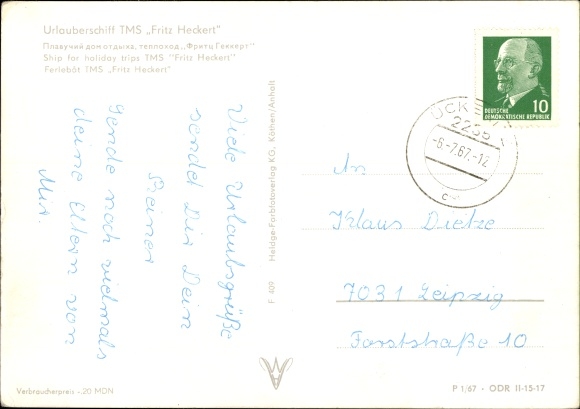 Urlauberschiff TMS „Fritz Heckert"
Плавучий дом отдыха, теплоход „Фритц Геккерт"
Ship for holiday trips TMS "Fritz Heckert"
Ferlebåt TMS „Fritz Heckert"
Viele Urlaubsgrüße
sendet Dir Dein
Reiner
Sende noch vielmals
deine Eltern von
Mir.
F 409 Heldge-Farblotoverlag KG, Köthen/Anhalt
DEUTSCHE
DEMOKRATISCHE REPUBLIK
10
2255
-6-7.67.-12
An
Klaus Dietze
7031 Leipzig
Forststraße 10
Verbraucherpreis -20 MDN
P 1/67 · ODR II-15-17